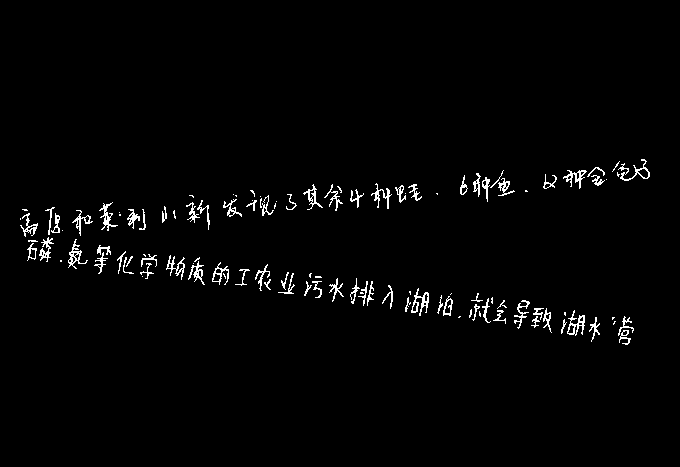 高原和莱利小新发现了其余4种蛙、6种鱼、12种金色子
磷、氮等化学物质的工农业污水排入湖泊,就会导致湖水营